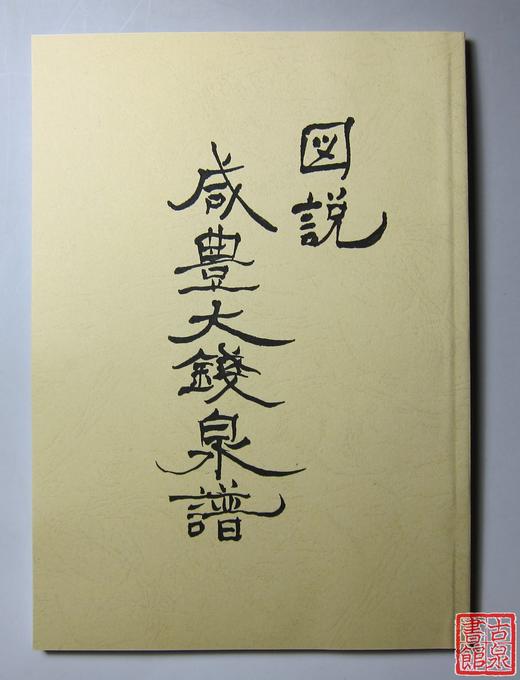 図説
咸豊大錢泉譜
古泉
書館